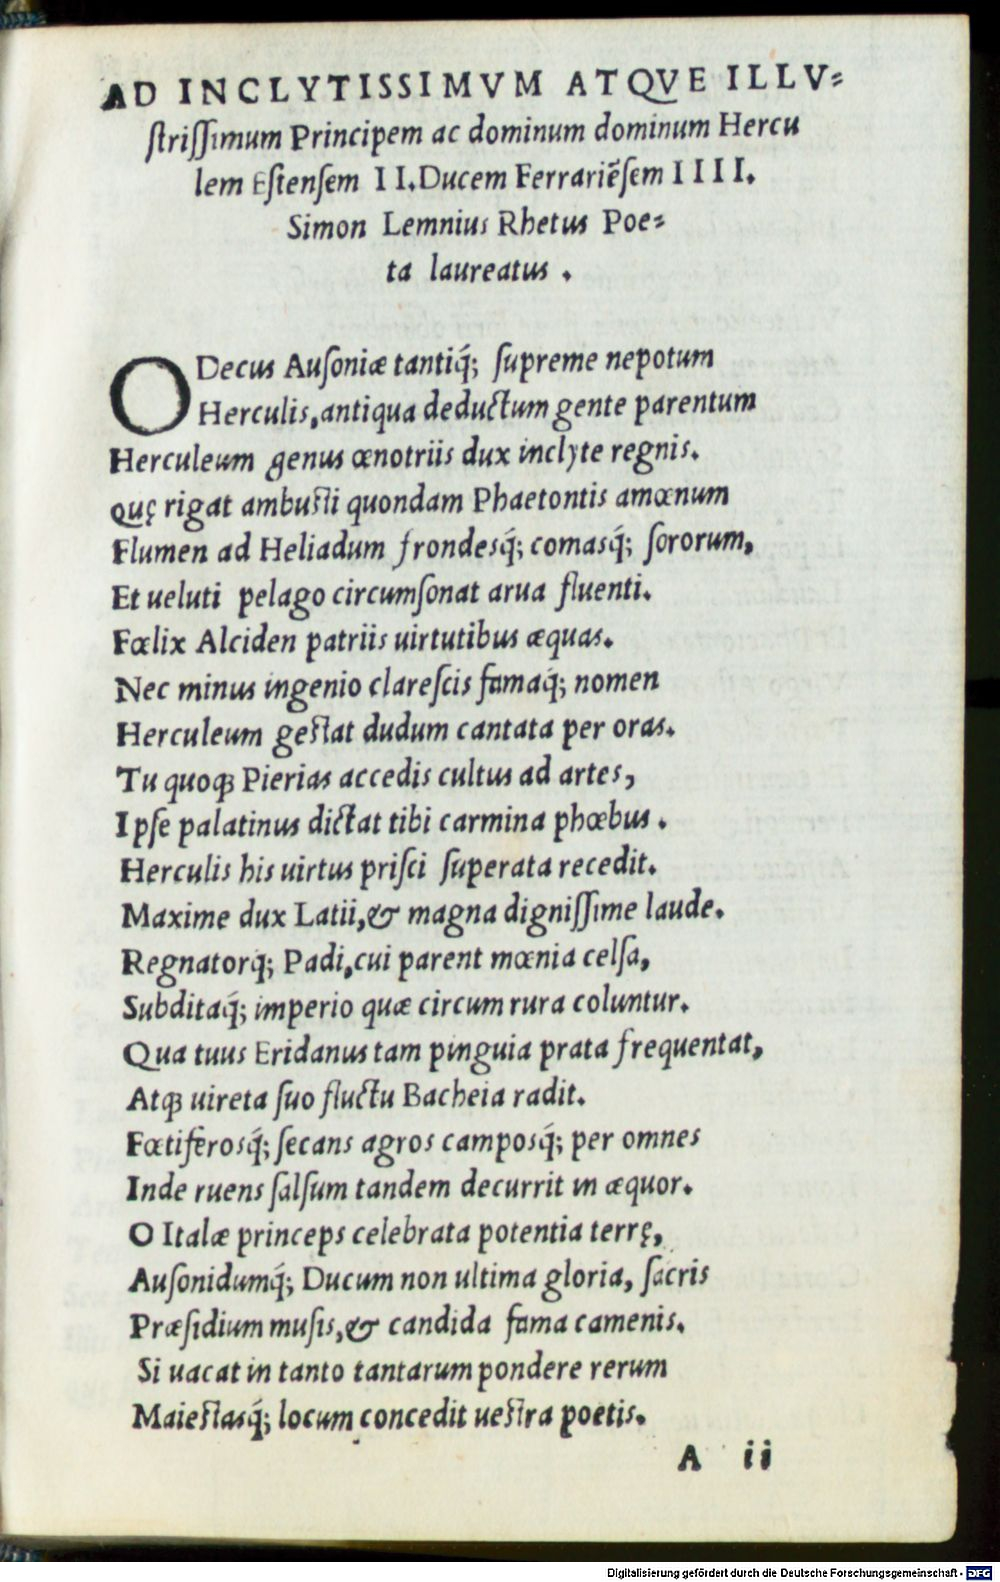 AD INCLYTISSIMVM ATQVE ILLV⸗
ſtriſſimum Principem ac dominum dominum Hercu
lem Eſtenſem II. Ducem Ferrariẽſem IIII.
Simon Lemnius Rhetus Poe⸗
ta laureatus .
O Decus Auſoniæ tantiq́; ſupreme nepotum
Herculis, antiqua deductum gente parentum
Herculeum genus œnotriis dux inclyte regnis.
quę rigat ambuſti quondam Phaetontis amœnum
Flumen ad Heliadum frondesq́; comasq́; ſororum,
Et ueluti pelago circumſonat arua fluenti.
Fœlix Alciden patriis uirtutibus æquas.
Nec minus ingenio clareſcis famaq́; nomen
Herculeum geſtat dudum cantata per oras.
Tu quoqꝫ Pierias accedis cultus ad artes,
Ipſe palatinus dictat tibi carmina phœbus .
Herculis his uirtus priſci ſuperata recedit.
Maxime dux Latii, & magna digniſſime laude.
Regnatorq́; Padi, cui parent mœnia celſa,
Subditaq́; imperio quæ circum rura coluntur.
Qua tuus Eridanus tam pinguia prata frequentat,
Atqꝫ uireta ſuo fluctu Bacheia radit.
Fœtiferosq́; ſecans agros camposq́; per omnes
Inde ruens ſalſum tandem decurrit in æquor.
O Italæ princeps celebrata potentia terrę,
Auſonidumq́; Ducum non ultima gloria, ſacris
Præſidium muſis, & candida fama camenis.
Si uacat in tanto tantarum pondere rerum
Maieſtasq́; locum concedit ueſtra poetis.
A ii
Digitalisierung gefördert durch die Deutsche Forschungsgemeinschaft - DFG